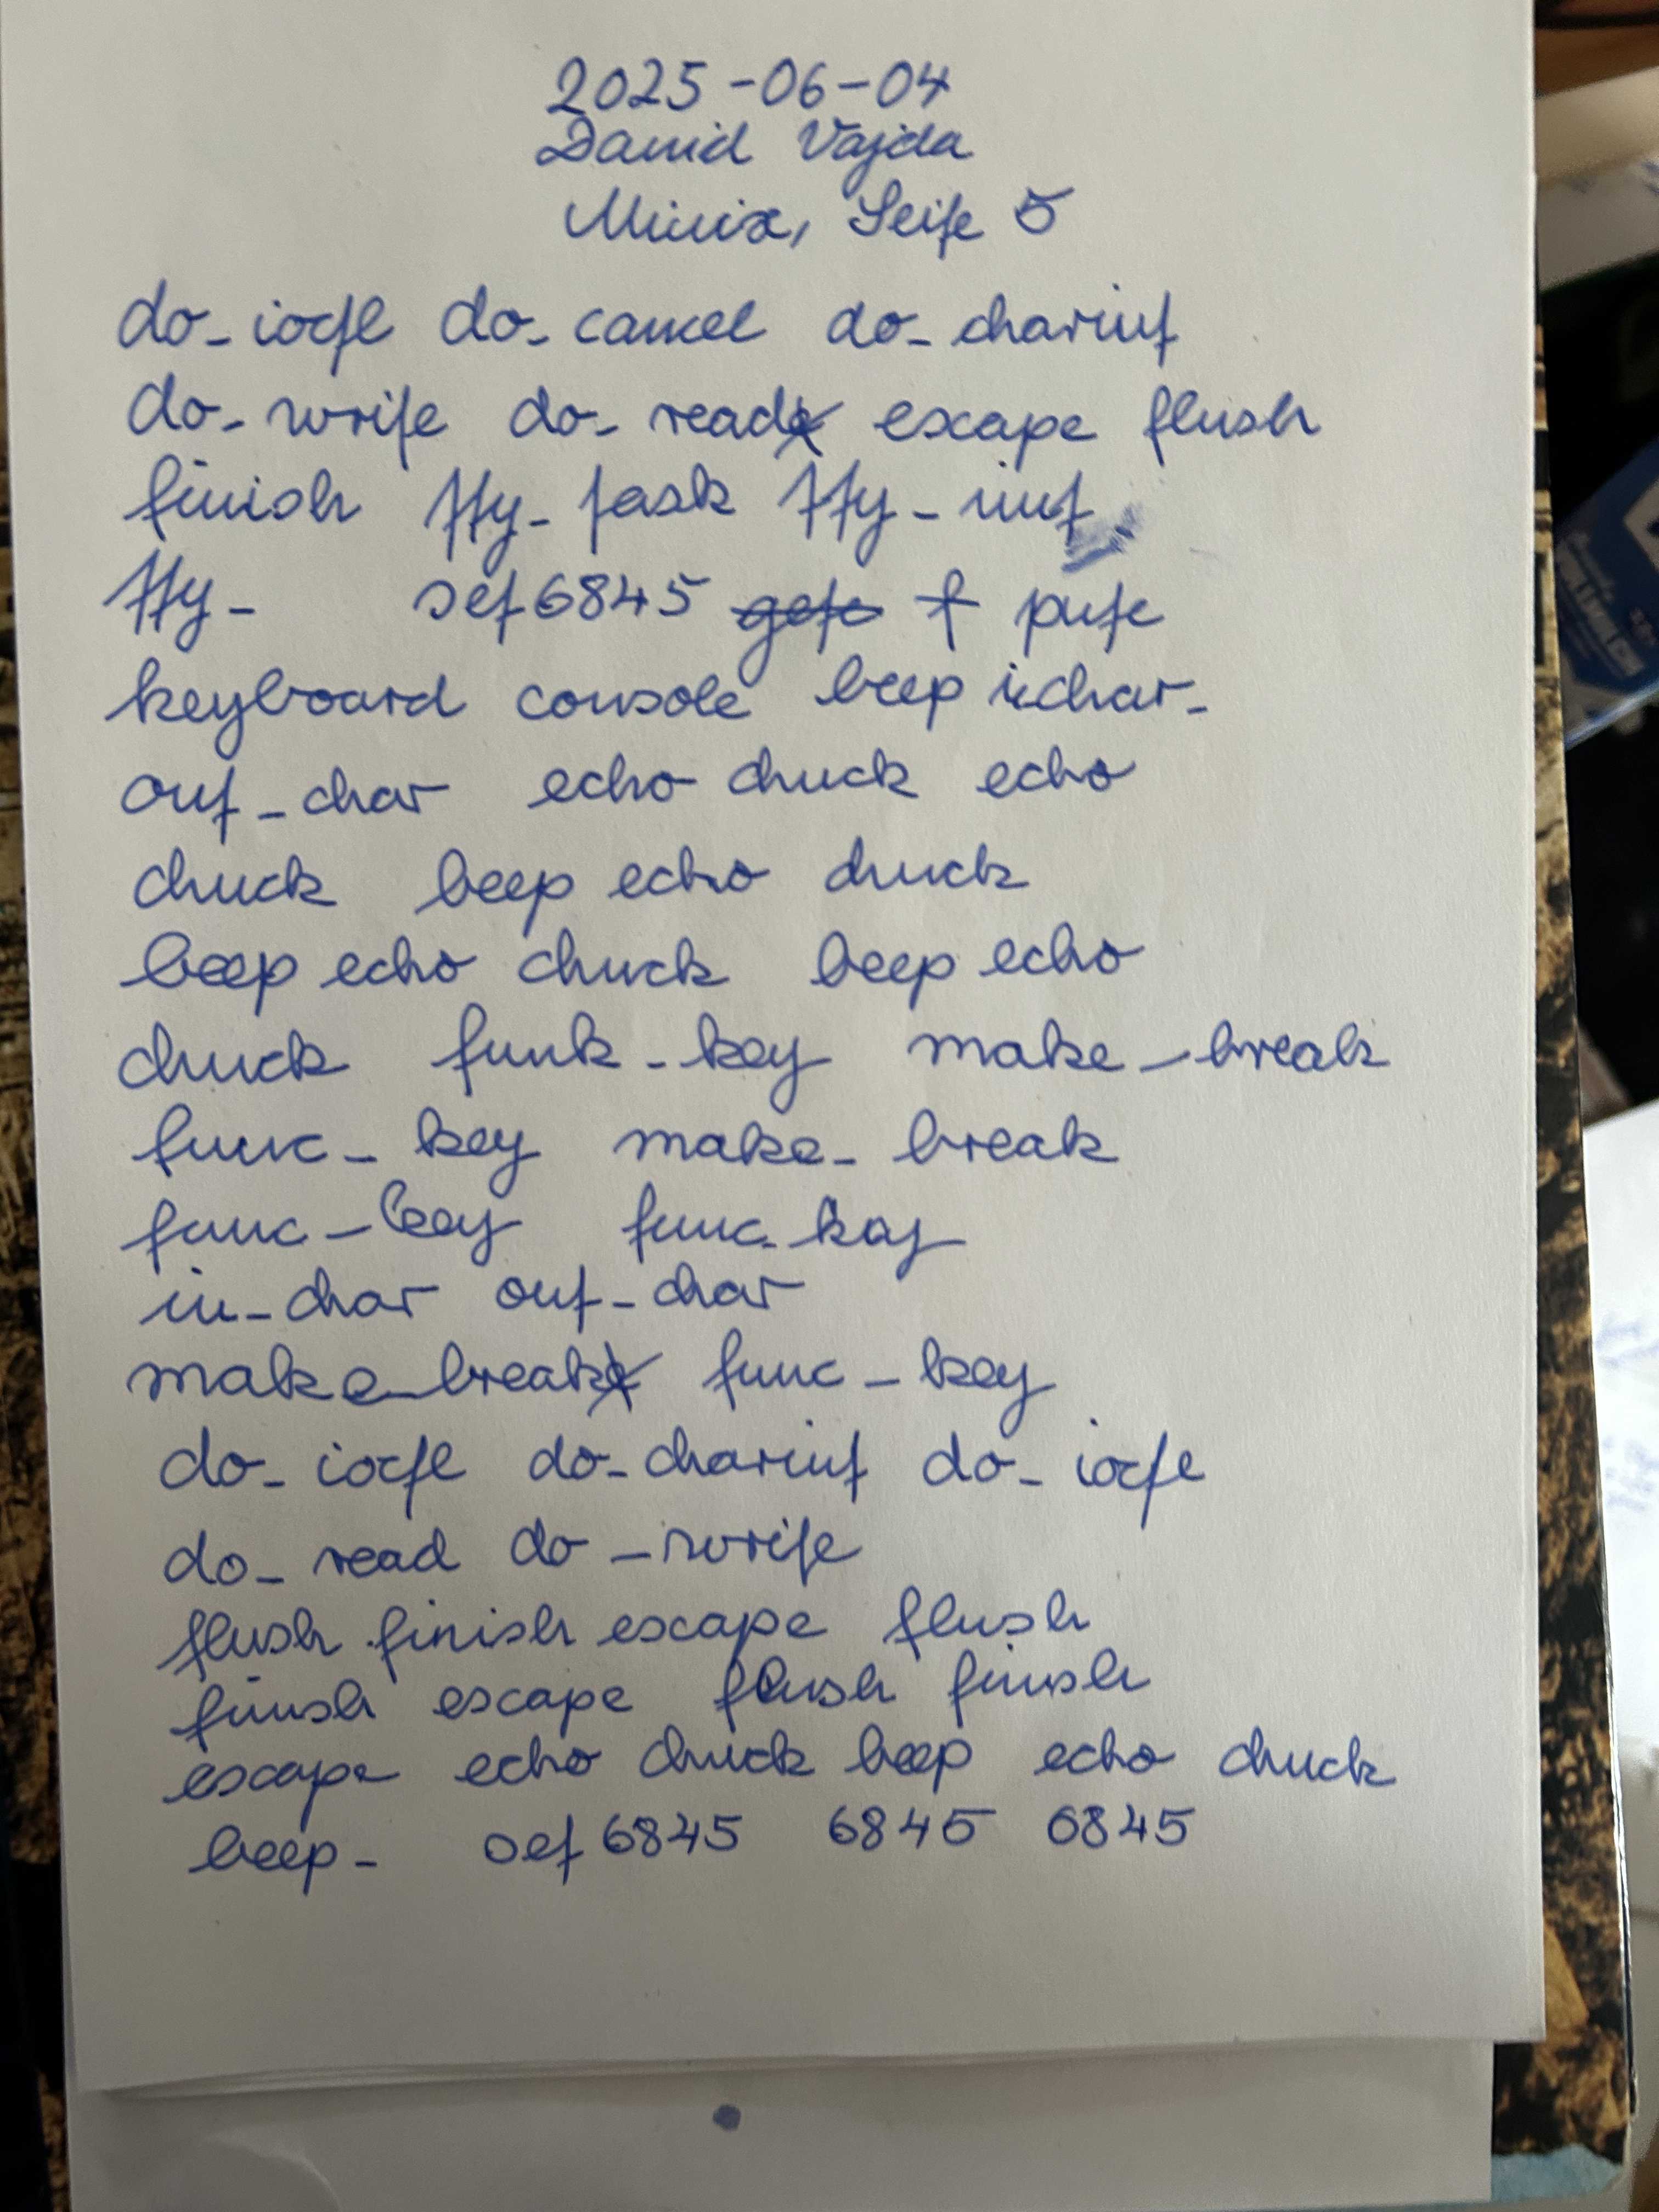 2025-06-04
David Vajda
Minix, Seite 5
do_ioctl do_cancel do_charint
do_write do_read escape flush
finish tty_task tty_init
tty_ set6845 putc
keyboard console beep inchar_
out_char echo chuck echo
chuck beep echo chuck
beep echo chuck beep echo
chuck funk_key make_break
func_key make_break
func_key func_key
in_char out_char
make_break func_key
do_ioctl do_charint do_ioctl
do_read do_write
flush finish escape flush
finish escape flush finish
escape echo chuck beep echo chuck
beep_ set6845 6845 6845